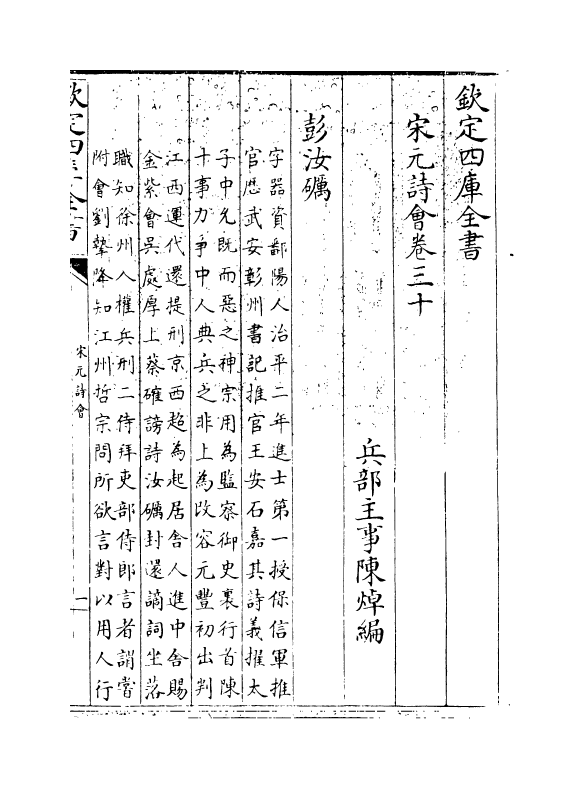 欽定四庫全書
宋元詩會卷三十
兵部主事陳焯編
彭汝礪
字器資鄱陽人治平二年進士第一授保信軍推
官歴武安彰州書記推官王安石嘉其詩義擢太
子中允既而惡之神宗用為監察御史裏行首陳
十事力爭中人典兵之非上為改容元豐初出判
江西運代還提刑京西趙為起居舍人進中舍賜
金紫會吳處厚上蔡確謗詩汝礪封還謫詞坐落
職知徐州入權兵刑二侍拜吏部侍郎言者謂嘗
附會劉摯降知江州哲宗問所欲言對以用人行
欽定四庫全書
宋元詩會
一